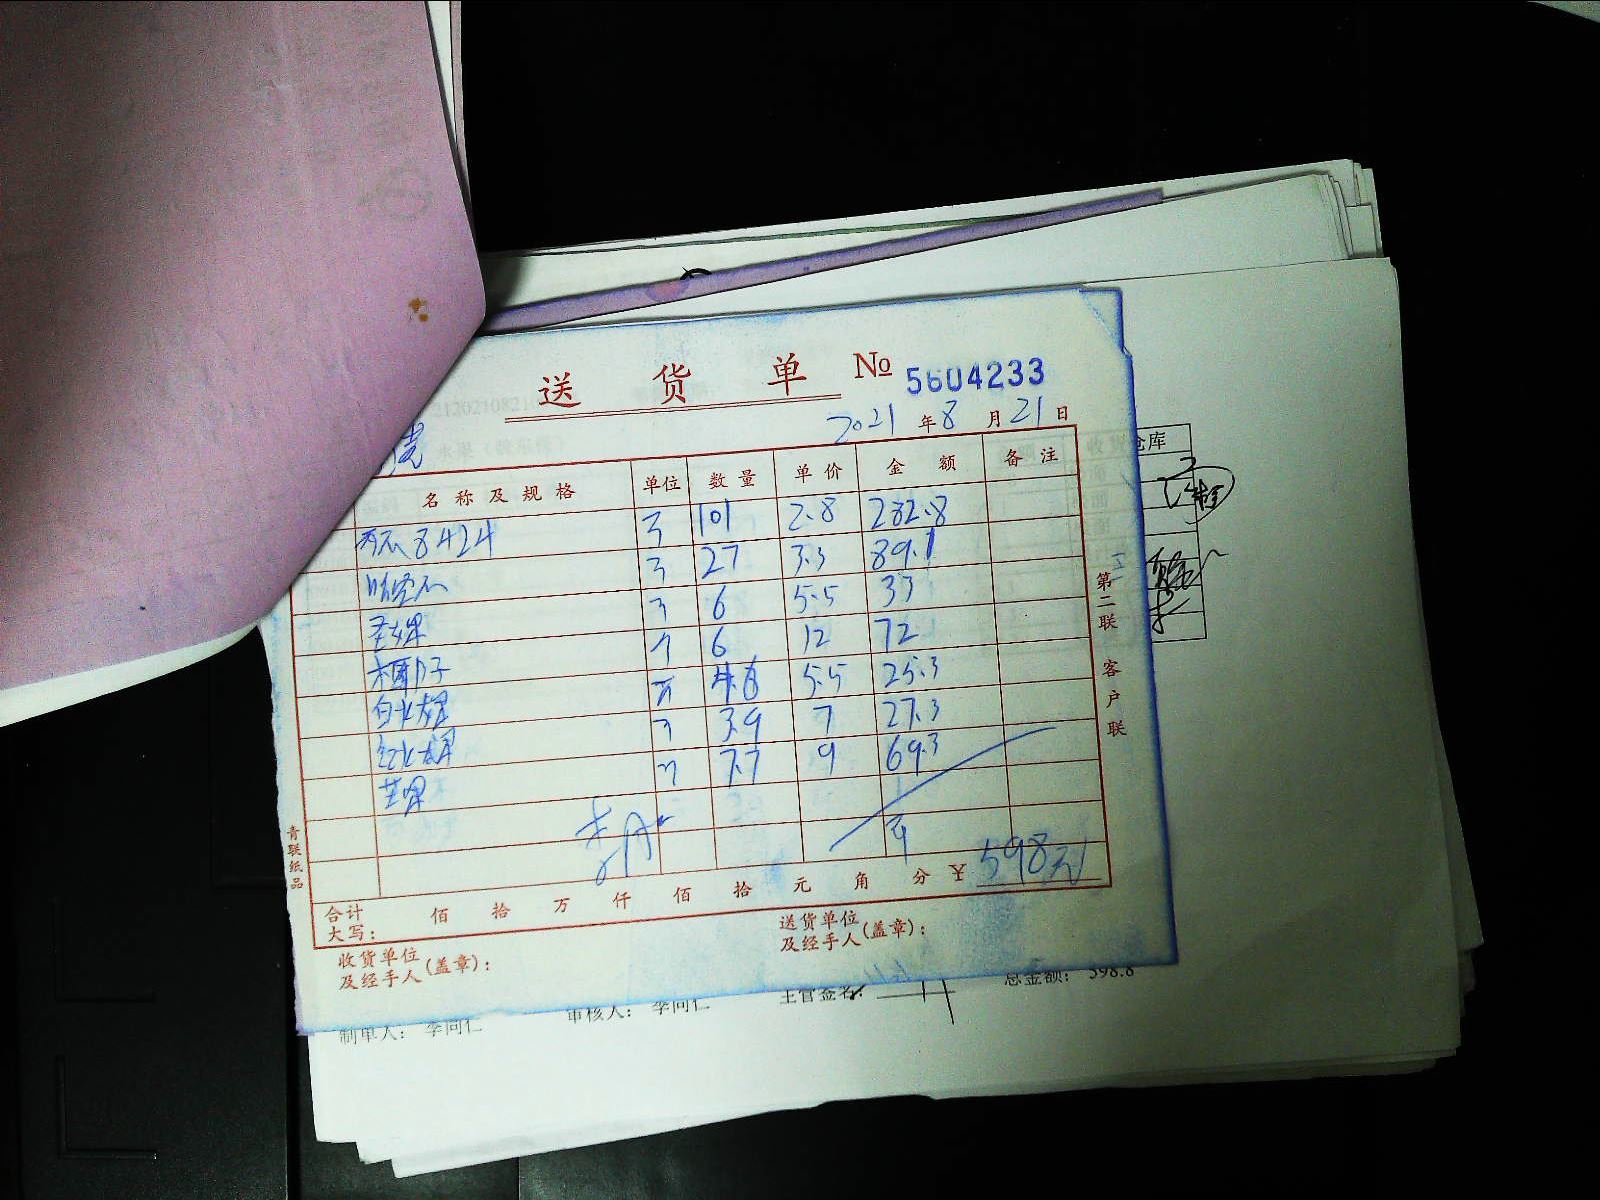 送 货 单 № 5604233
2021 年 8 月 21 日
名称及规格 单位 数量 单价 金额 备注
8424 101 2.8 282.8
27 3.3 89.1
6 5.5 33
椰子 6 12 72
白火龙果 4.6 5.5 25.3
红火龙果 3.9 7 27.3
芒果 7.7 9 69.3
合计
大写: 佰 拾 万 仟 佰 拾 元 角 分 ¥ 598元
收货单位
及经手人(盖章):
送货单位
及经手人(盖章):
第二联 客户联
青联纸品
仓库
制单人: 李同仁 审核人: 李同仁 主管签名: 总金额: 598.8